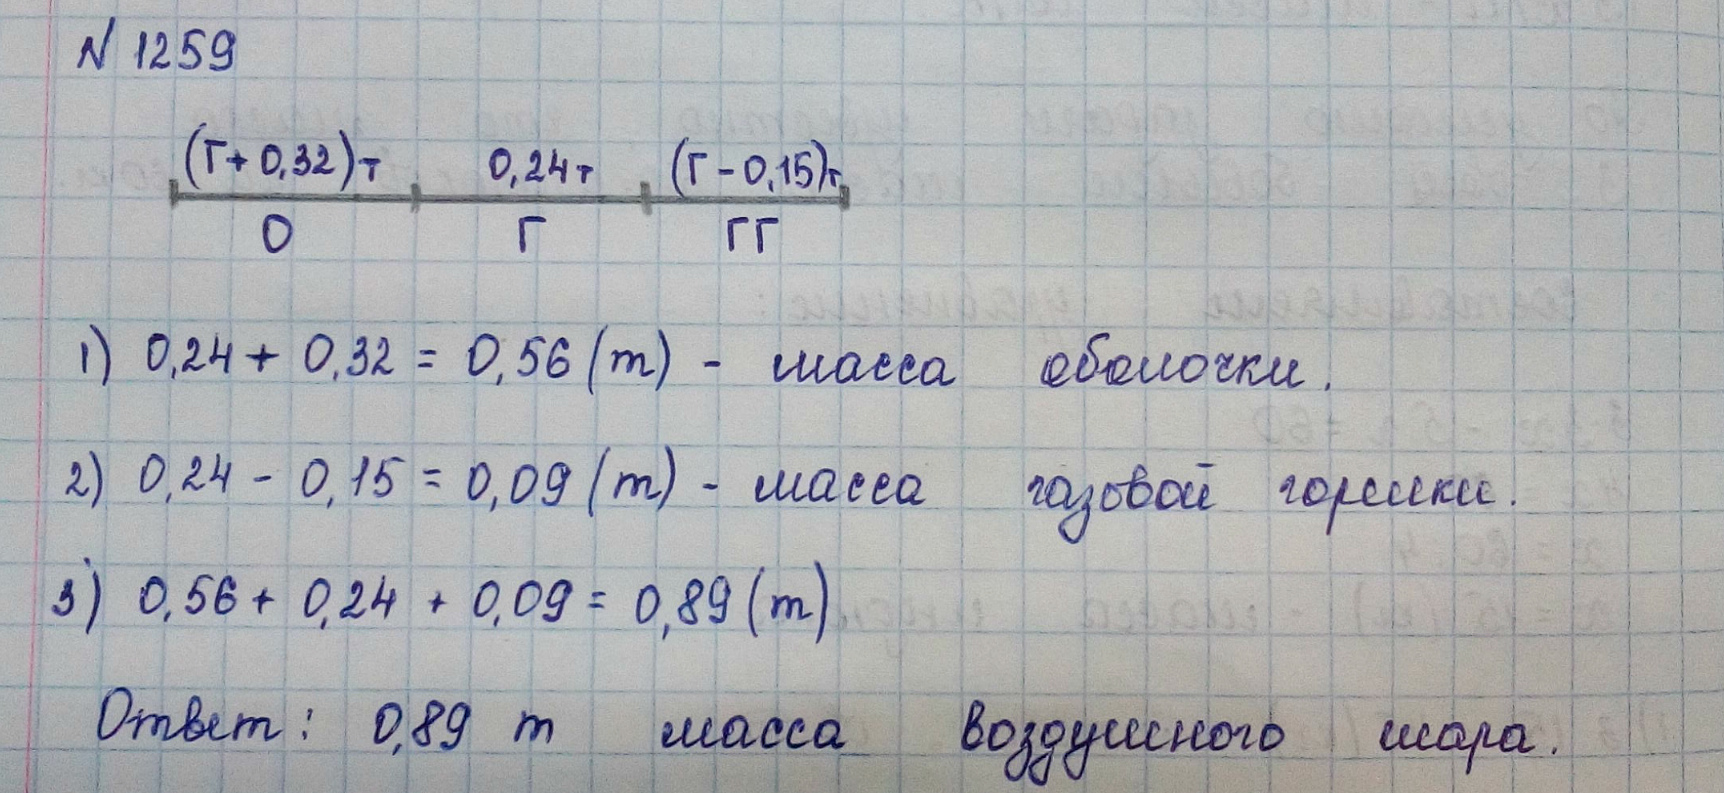 N 1259
(Г+0,32)т 0,24т (Г-0,15)т
О Г ГГ
1) 0,24 + 0,32 = 0,56 (т) - масса оболочки.
2) 0,24 - 0,15 = 0,09 (т) - масса газовой горелки.
3) 0,56 + 0,24 + 0,09 = 0,89 (т)
Ответ: 0,89 т масса воздушного шара.